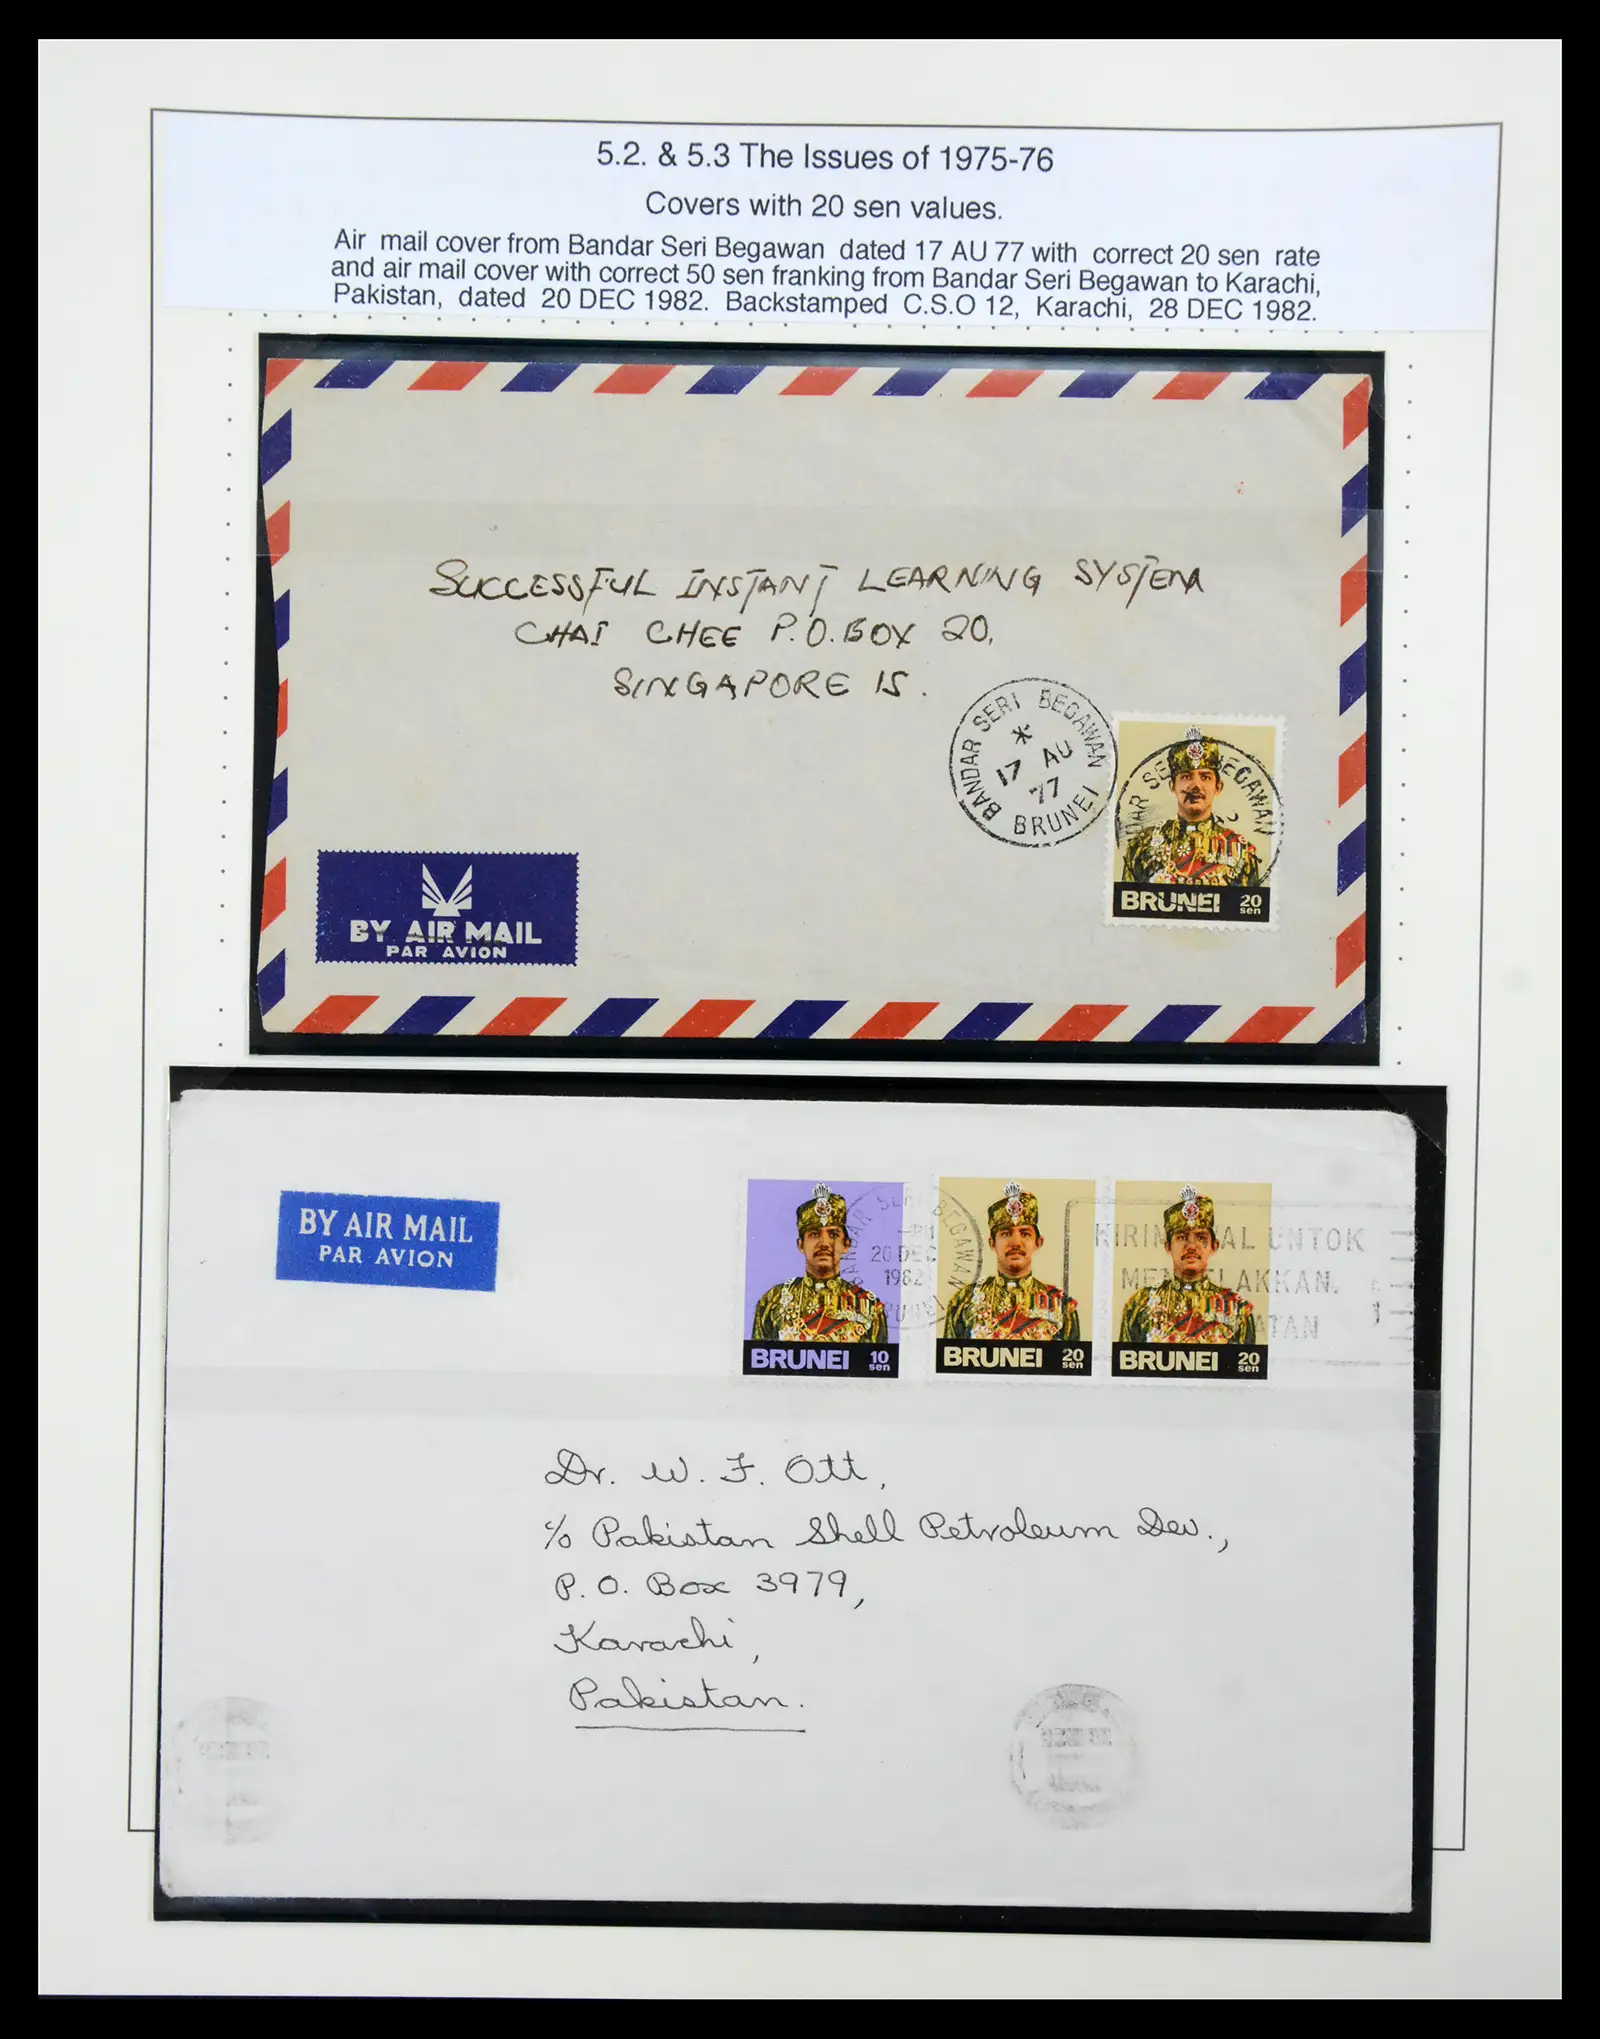 5.2. & 5.3 The Issues of 1975-76
Covers with 20 sen values.
Air mail cover from Bandar Seri Begawan dated 17 AU 77 with correct 20 sen rate
and air mail cover with correct 50 sen franking from Bandar Seri Begawan to Karachi,
Pakistan, dated 20 DEC 1982. Backstamped C.S.O 12, Karachi, 28 DEC 1982.
SUCCESSFUL INSTANT LEARNING SYSTEM
CHAI CHEE P.O. BOX 20,
SINGAPORE 15.
BANDAR SERI BEGAWAN
17 AU
77
BRUNEI
BEGAWAN
BRUNEI 20
sen
BY AIR MAIL
PAR AVION
BY AIR MAIL
PAR AVION
SERI BEGAWAN
20 DEC
1982
BRUNEI 10
sen
BRUNEI 20
sen
BRUNEI 20
sen
UNTOK
Dr. W. F. Ott,
c/o Pakistan Shell Petroleum Dev.,
P. O. Box 3979,
Karachi,
Pakistan.